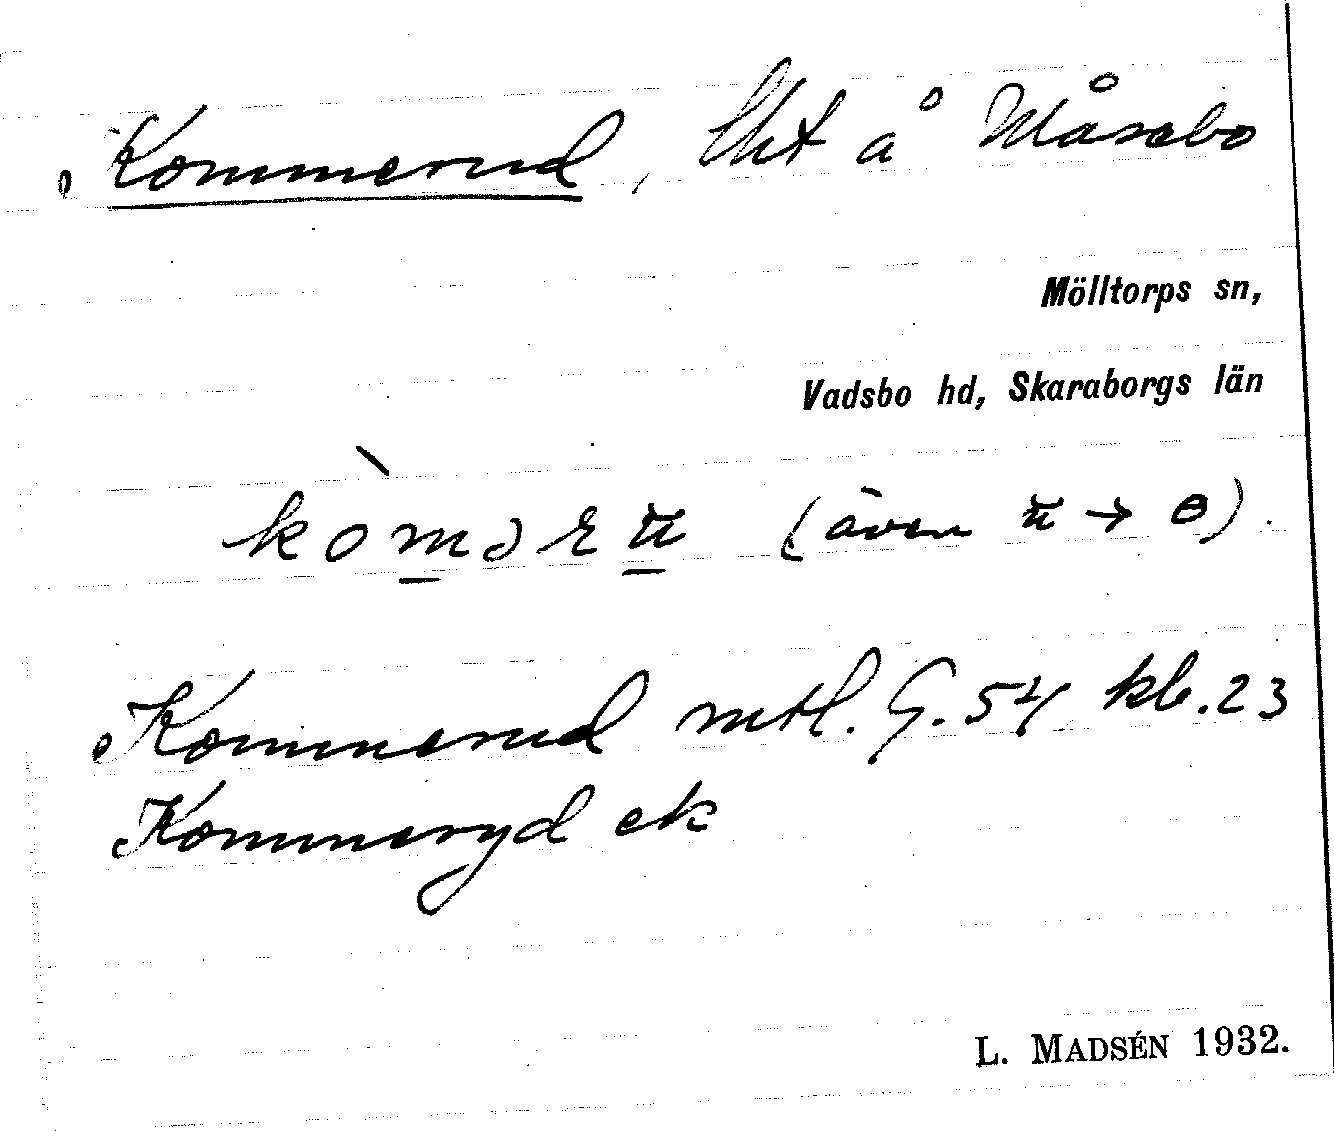 Kommerud, lht å Måsebo
Mölltorps sn,
Vadsbo hd, Skaraborgs län
kòməru̶ (även u̶ → ɵ)
Kommerud mtl. G. 54 kb. 23
Kommeryd ek
L. MADSÉN 1932.